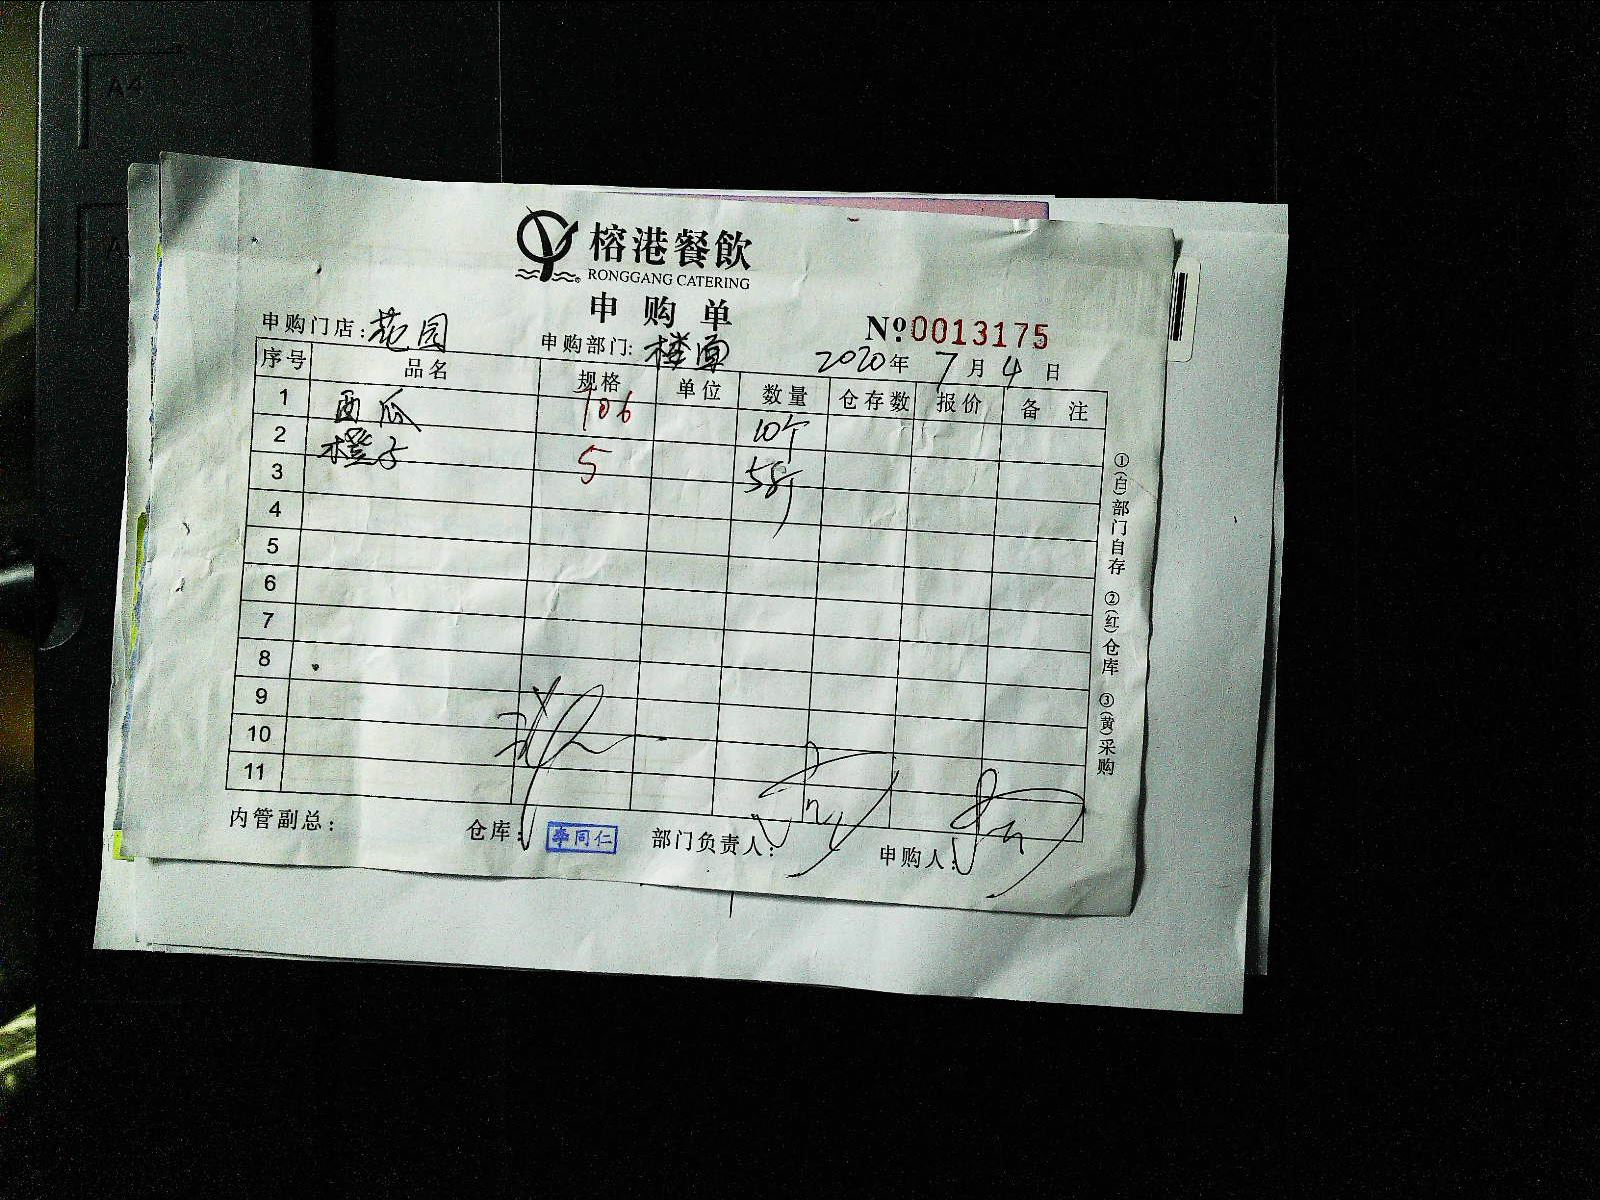 榕港餐飲
RONGGANG CATERING
申购单
№0013175
申购门店：花园 申购部门：楼面 2020年7月4日
序号 品名 规格 单位 数量 仓存数 报价 备注
1 西瓜 106 10个
2 橙子 5 5斤
3
4
5
6
7
8
9
10
11
①(白)部门自存 ②(红)仓库 ③(黄)采购
内管副总： 仓库： 李同仁 部门负责人： 申购人：
A4